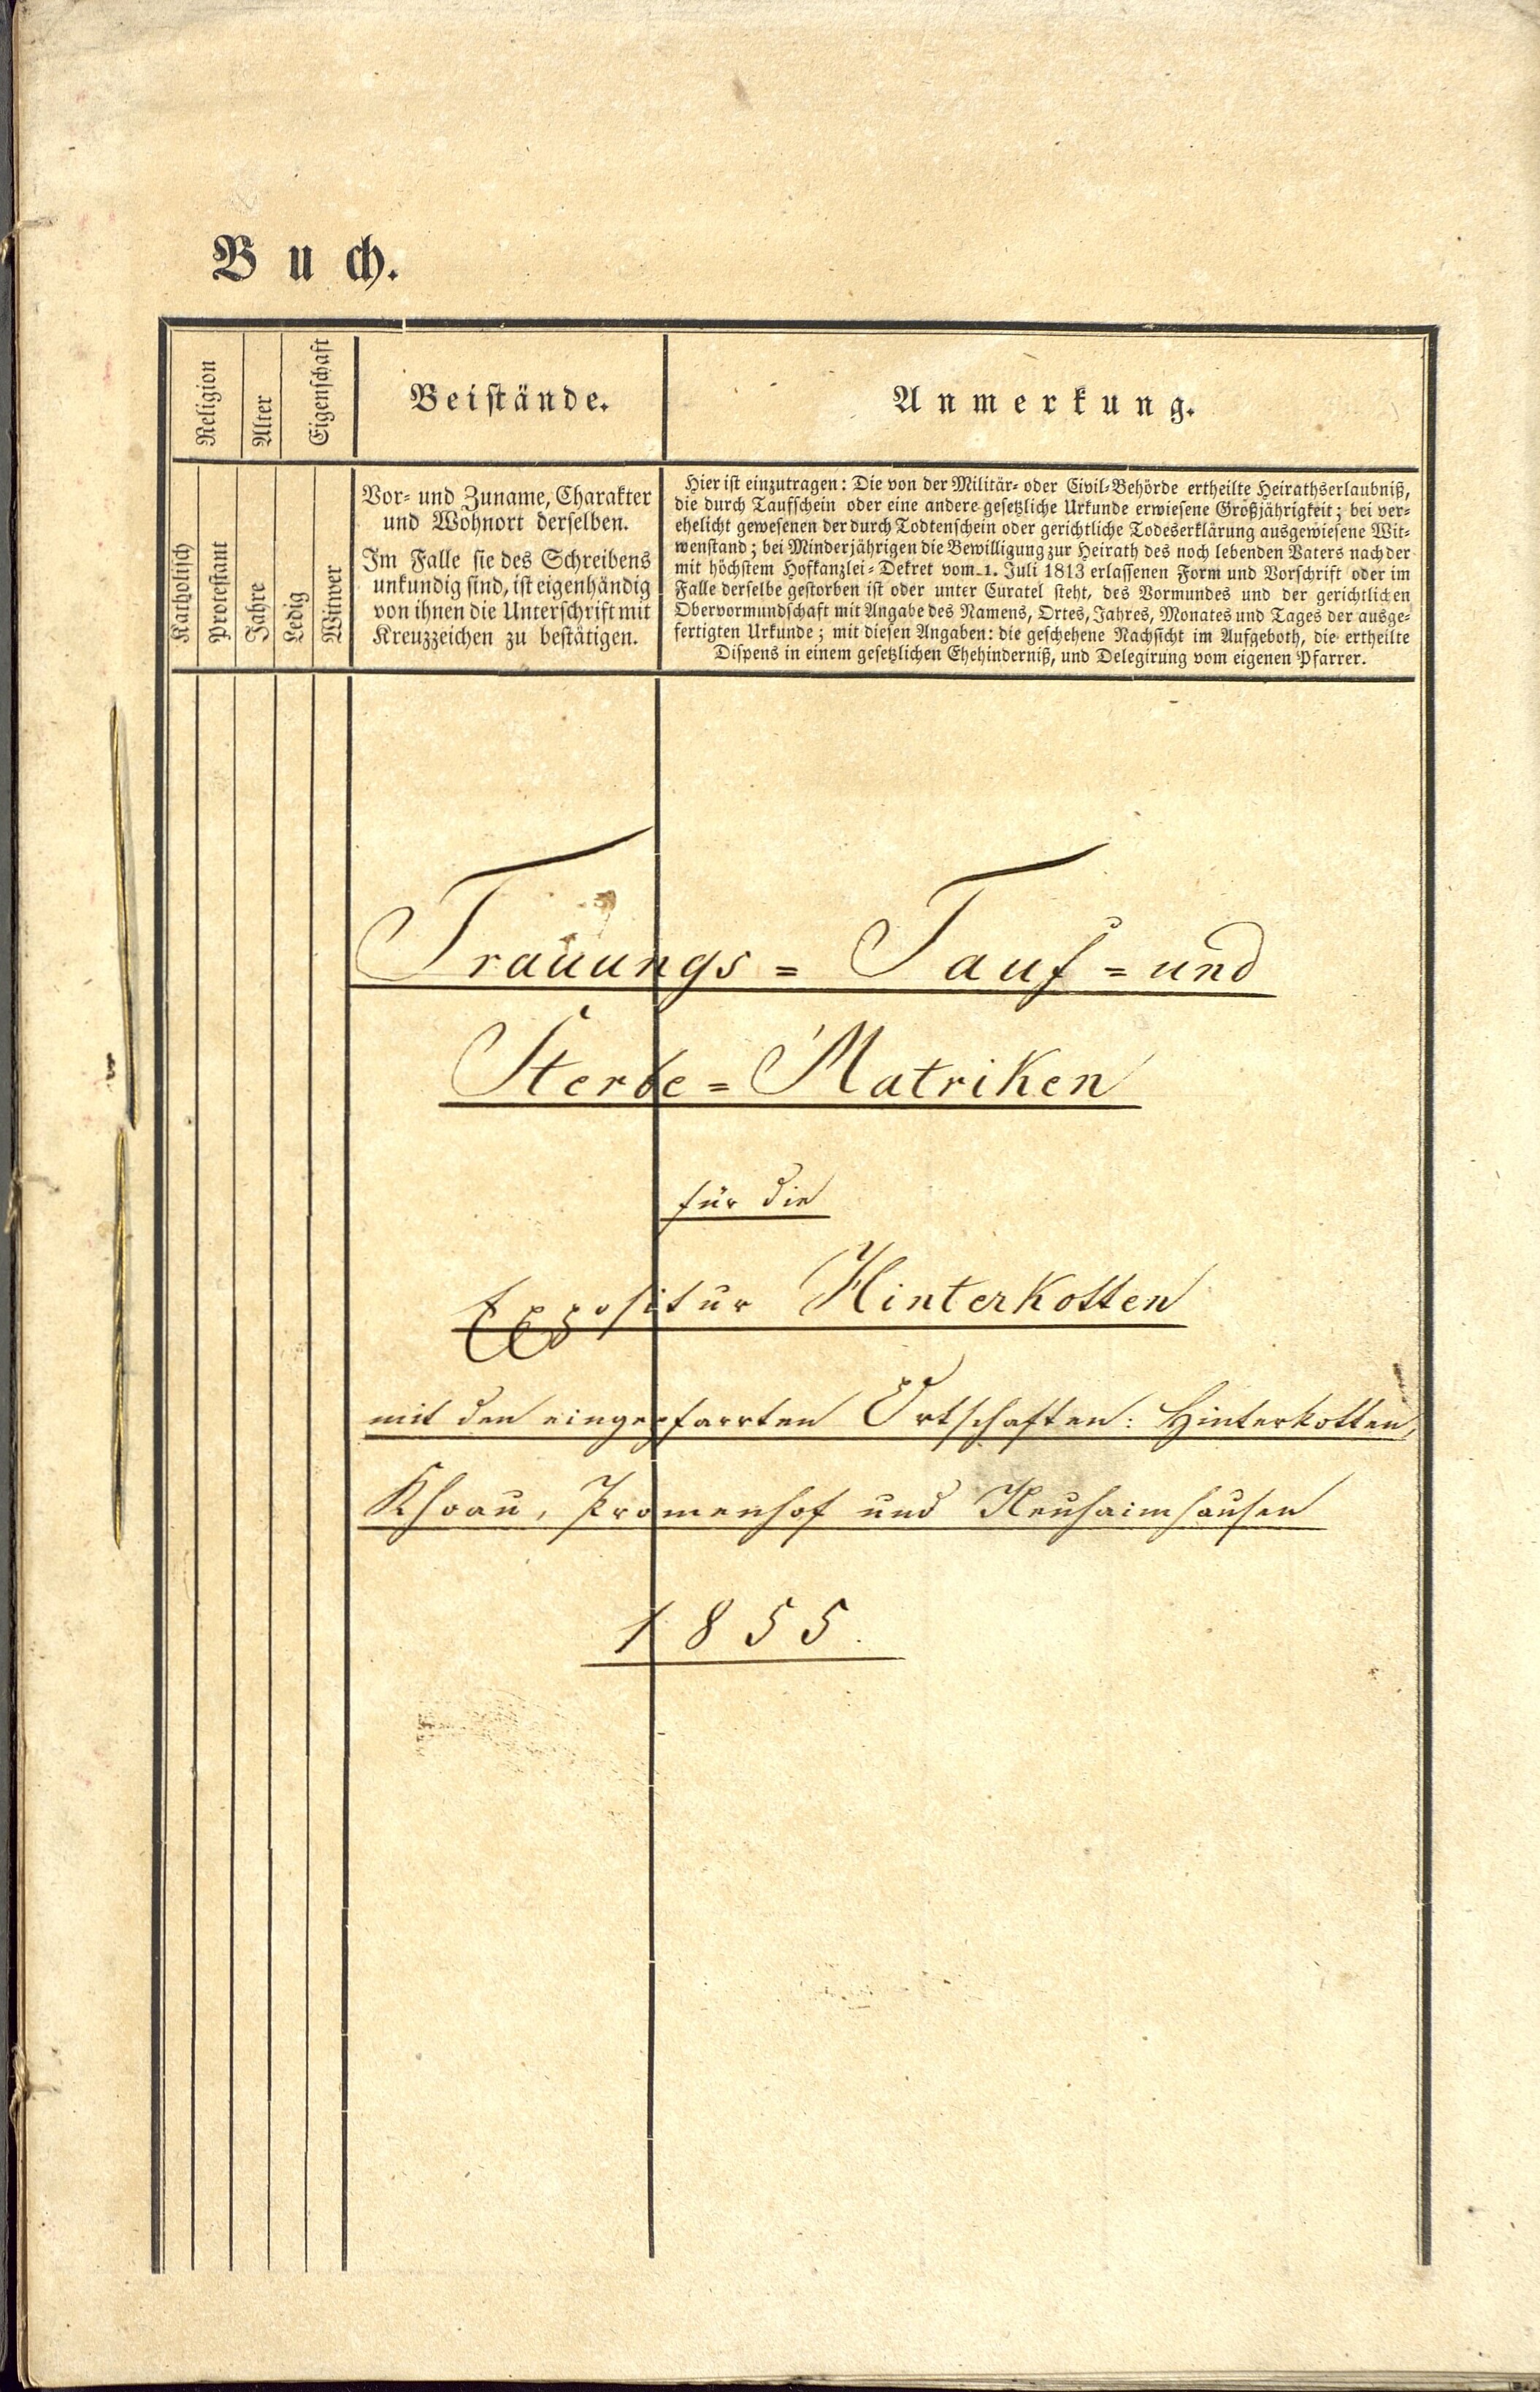 Buch.
Religion
Alter
Eigenschaft
Beistände.
Anmerkung.
Katholisch
Protestant
Jahre
Ledig
Witwer
Vor- und Zuname, Charakter
und Wohnort derselben.
Im Falle sie des Schreibens
unkundig sind, ist eigenhändig
von ihnen die Unterschrift mit
Kreuzzeichen zu bestätigen.
Hier ist einzutragen: Die von der Militär- oder Civil-Behörde ertheilte Heirathserlaubniß,
die durch Taufschein oder eine andere gesetzliche Urkunde erwiesene Großjährigkeit; bei ver-
ehelicht gewesenen der durch Todtenschein oder gerichtliche Todeserklärung ausgewiesene Wit-
wenstand; bei Minderjährigen die Bewilligung zur Heirath des noch lebenden Vaters nach der
mit höchstem Hofkanzlei-Dekret vom 1. Juli 1813 erlassenen Form und Vorschrift oder im
Falle derselbe gestorben ist oder unter Curatel steht, des Vormundes und der gerichtlichen
Obervormundschaft mit Angabe des Namens, Ortes, Jahres, Monates und Tages der ausge-
fertigten Urkunde; mit diesen Angaben: die geschehene Nachsicht im Aufgeboth, die ertheilte
Dispens in einem gesetzlichen Ehehinderniß, und Delegirung vom eigenen Pfarrer.
Trauungs= Tauf=und
Sterbe=Matriken
für die
Expositur Hinterkotten
mit den eingepfarrten Ortschaften: Hinterkotten,
Khoau, Promenhof und Neuhaimhausen
1855.